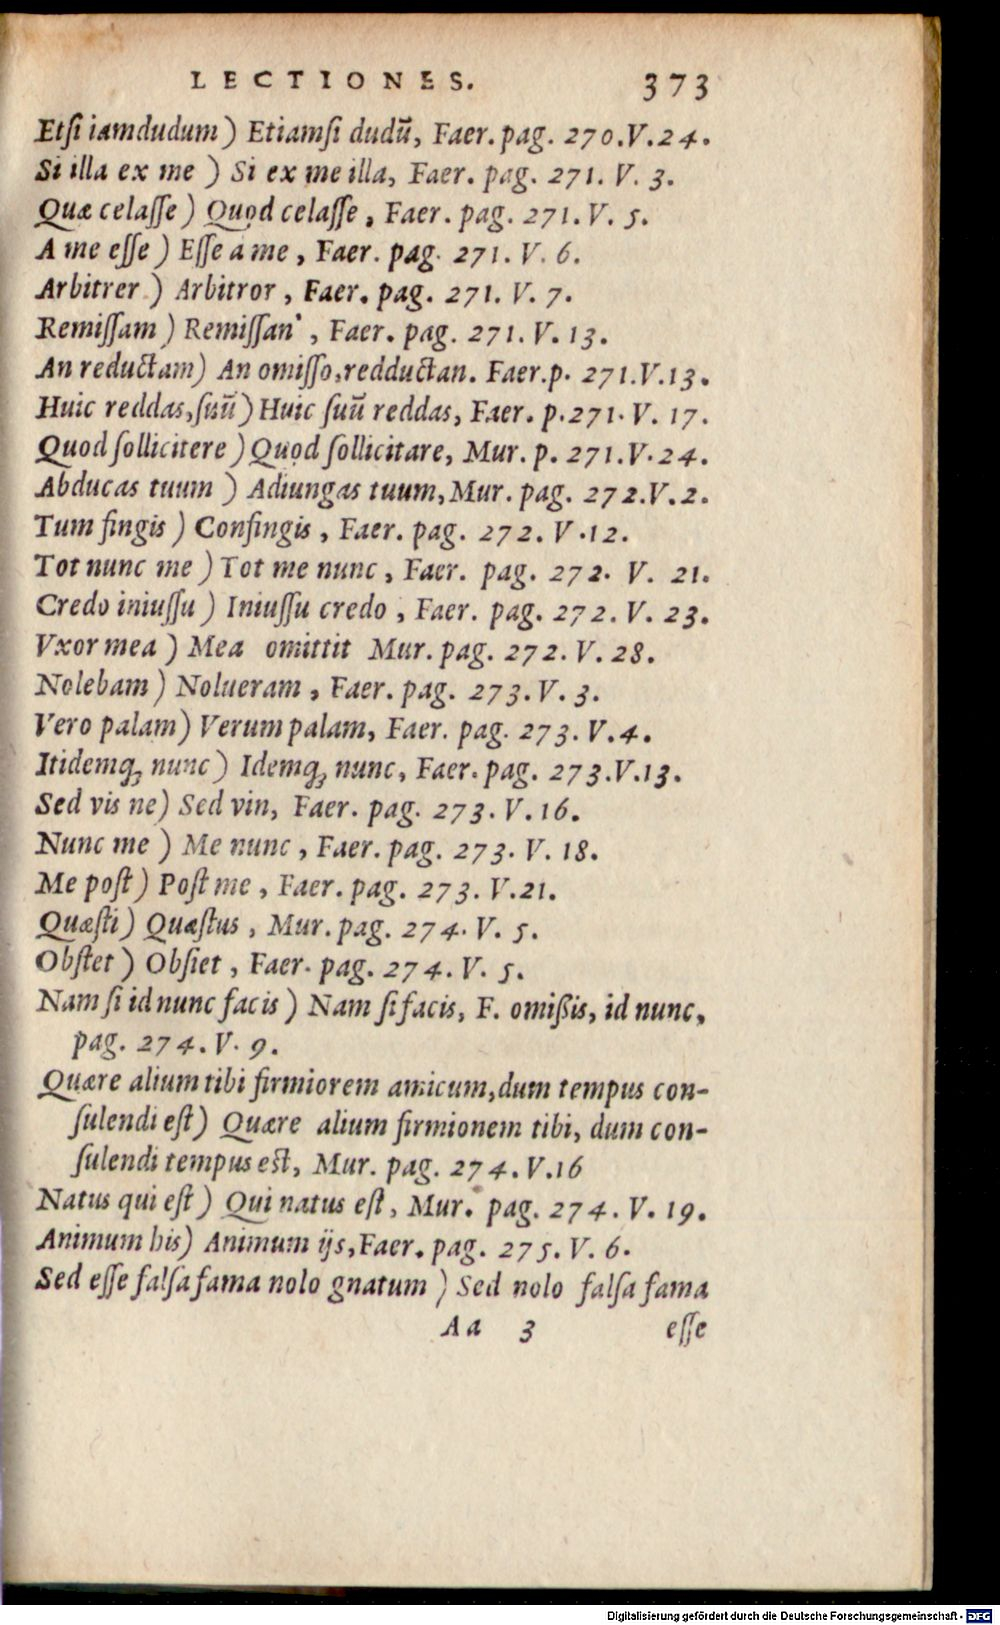 LECTIONES. 373
Etſi iamdudum) Etiamſi dudū, Faer. pag. 270.V.24.
Si illa ex me ) Si ex me illa, Faer. pag. 271. V. 3.
Quæ celaſſe) Quod celaſſe, Faer. pag. 271. V. 5.
A me eſſe ) Eſſe a me, Faer. pag. 271. V. 6.
Arbitrer ) Arbitror, Faer. pag. 271. V. 7.
Remiſſam ) Remiſſan', Faer. pag. 271. V. 13.
An reductam) An omiſſo, redductan. Faer.p. 271.V.13.
Huic reddas, ſuū) Huic ſuū reddas, Faer. p.271. V. 17.
Quod ſollicitere ) Quod ſollicitare, Mur. p. 271.V.24.
Abducas tuum ) Adiungas tuum, Mur. pag. 272.V.2.
Tum fingis ) Confingis, Faer. pag. 272. V .12.
Tot nunc me ) Tot me nunc, Faer. pag. 272. V. 21.
Credo iniuſſu ) Iniuſſu credo, Faer. pag. 272. V. 23.
Vxor mea ) Mea omittit Mur. pag. 272. V. 28.
Nolebam ) Nolueram, Faer. pag. 273. V. 3.
Vero palam) Verum palam, Faer. pag. 273. V. 4.
Itidemq; nunc ) Idemq; nunc, Faer. pag. 273.V.13.
Sed vis ne) Sed vin, Faer. pag. 273. V. 16.
Nunc me ) Me nunc, Faer. pag. 273. V. 18.
Me poſt ) Poſt me, Faer. pag. 273. V.21.
Quæſti) Quæſtus, Mur. pag. 274. V. 5.
Obſtet ) Obſiet, Faer. pag. 274. V. 5.
Nam ſi id nunc facis ) Nam ſi facis, F. omißis, id nunc,
pag. 274. V. 9.
Quære alium tibi firmiorem amicum, dum tempus con-
ſulendi eſt) Quære alium firmionem tibi, dum con-
ſulendi tempus est, Mur. pag. 274. V.16
Natus qui eſt ) Qui natus eſt, Mur. pag. 274. V. 19.
Animum his) Animum ijs, Faer. pag. 275. V. 6.
Sed eſſe falſa fama nolo gnatum ) Sed nolo falſa fama
Aa 3 eſſe
Digitalisierung gefördert durch die Deutsche Forschungsgemeinschaft - DFG